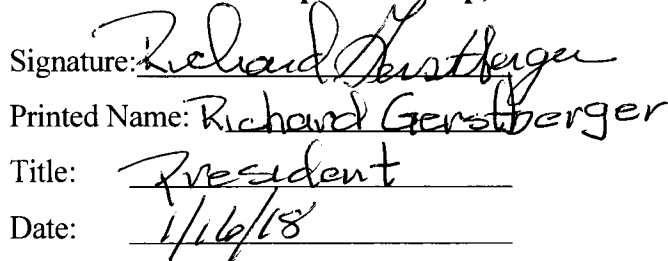 Signature: Richard Gerstberger
Printed Name: Richard Gerstberger
Title: President
Date: 1/16/18